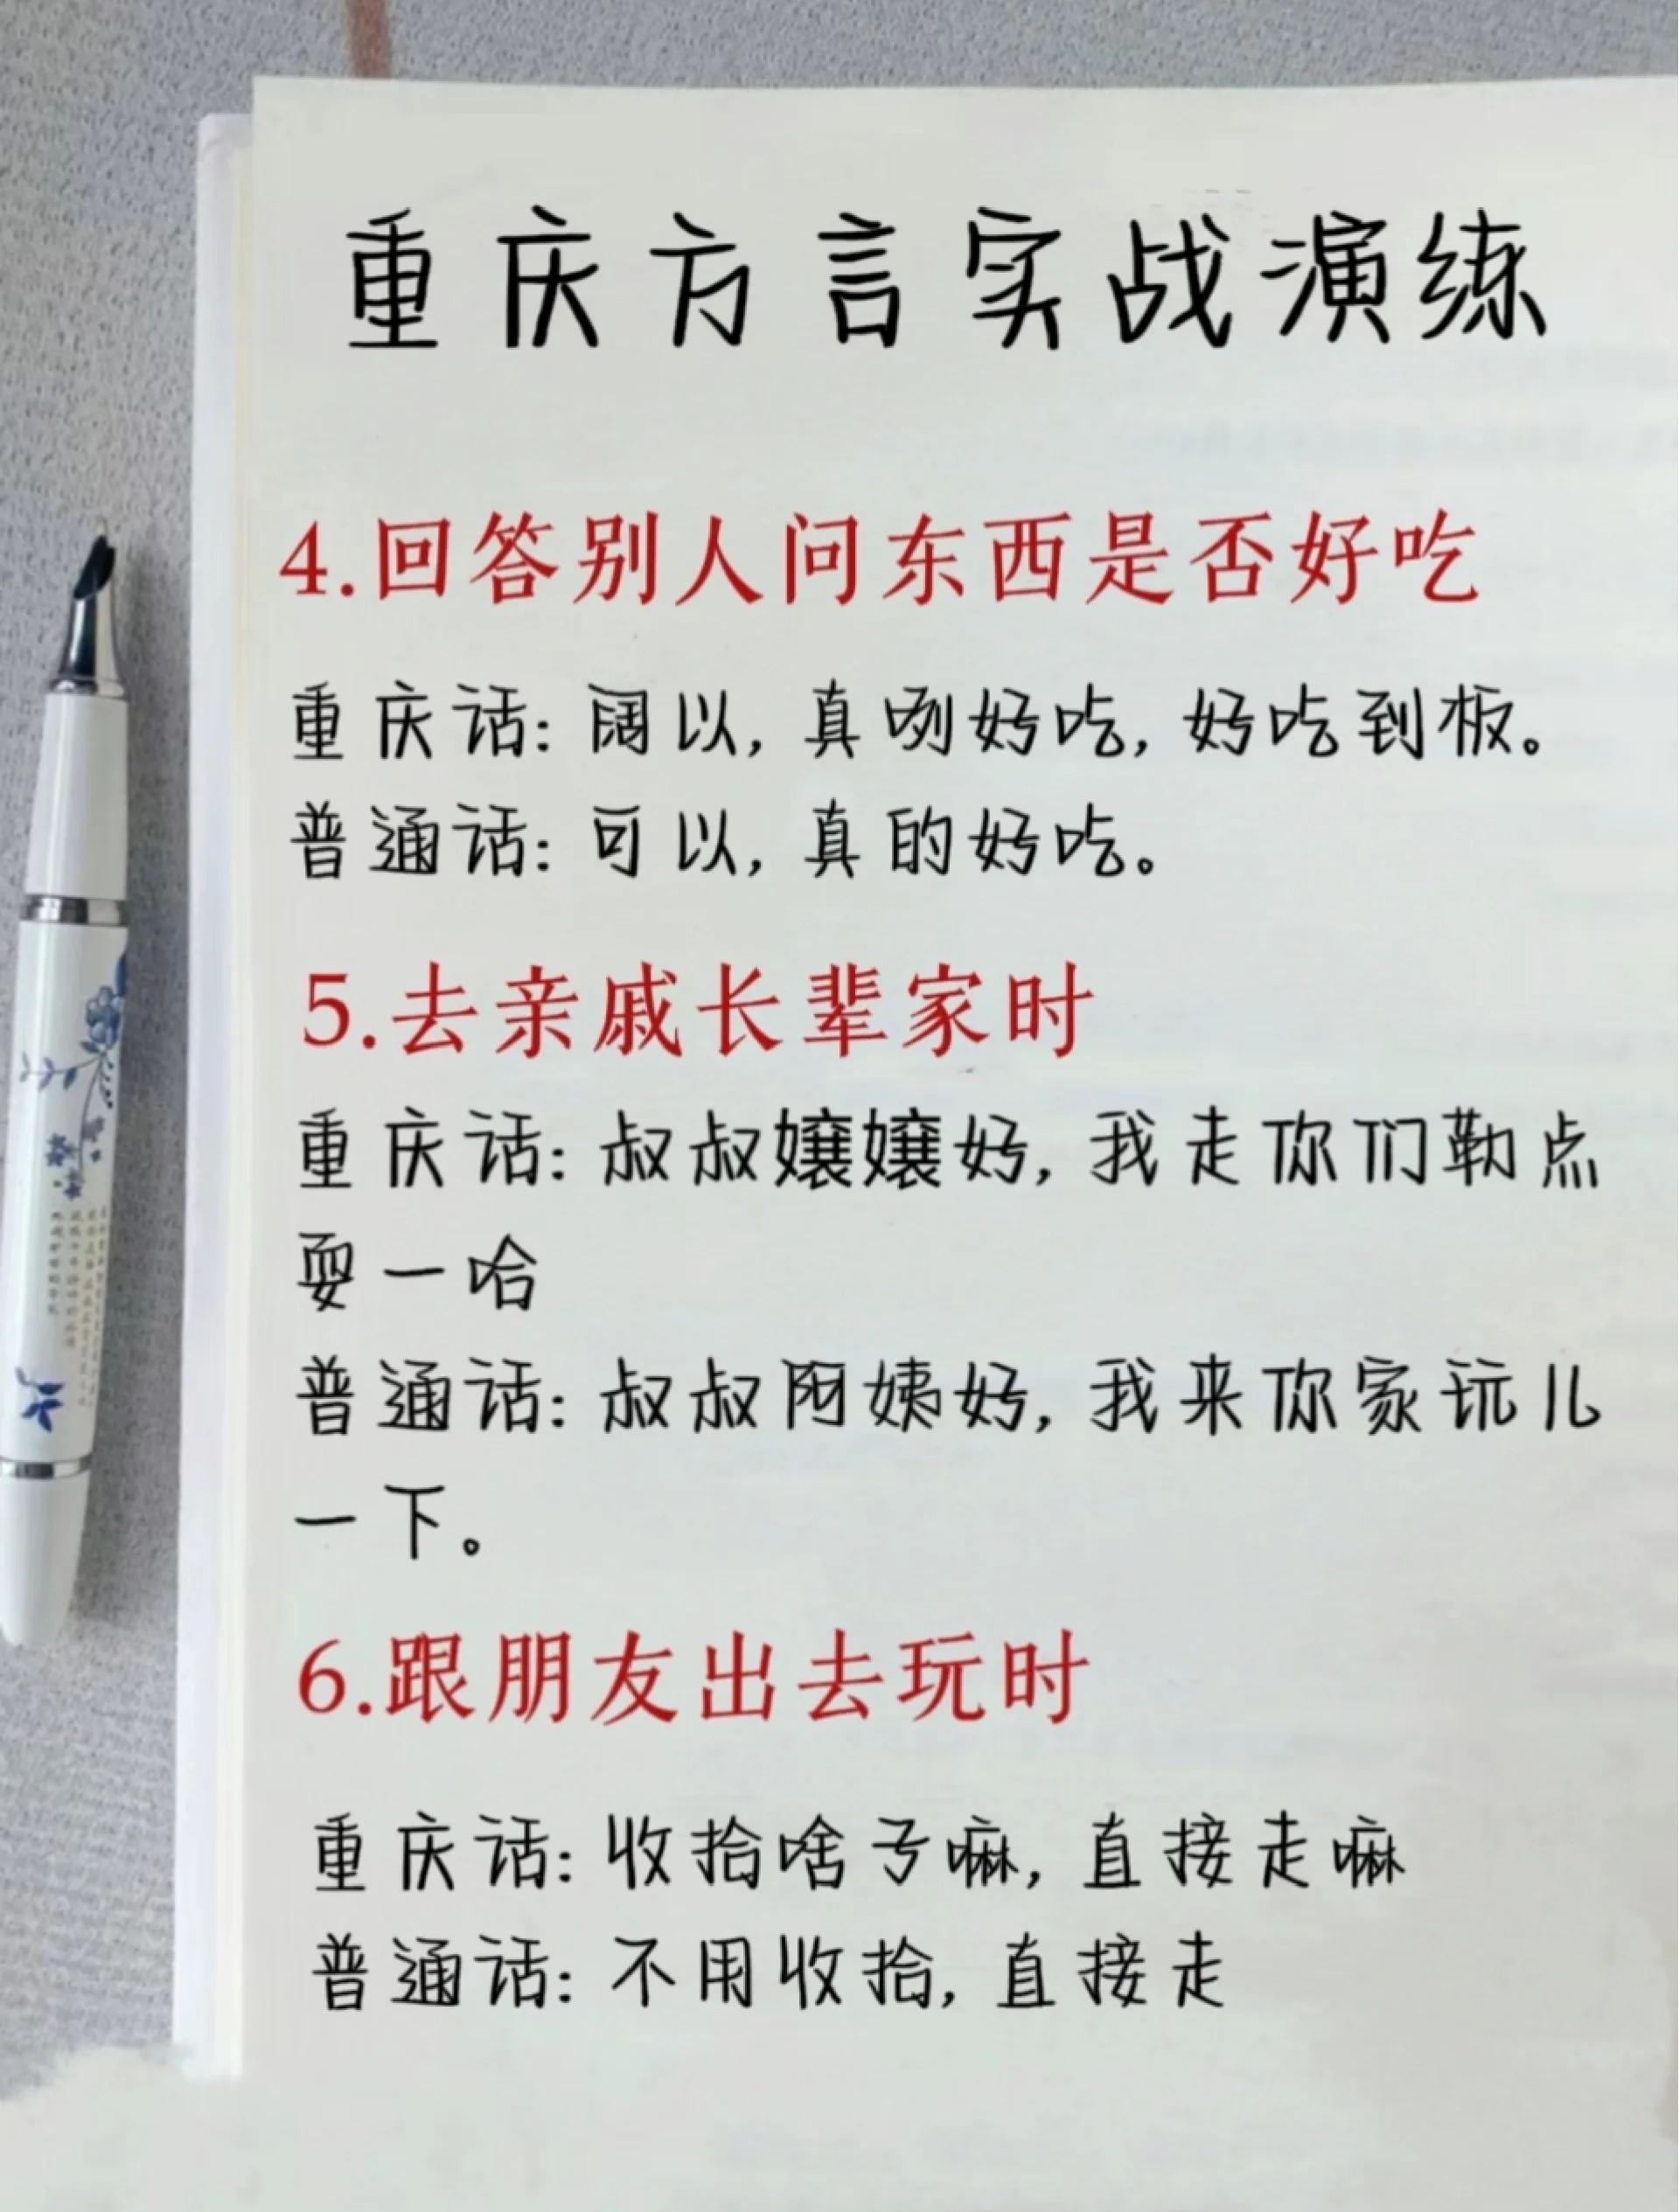 重庆方言实战演练
4.回答别人问东西是否好吃
重庆话：阔以，真咧好吃，好吃到板。
普通话：可以，真的好吃。
5.去亲戚长辈家时
重庆话：叔叔嬢嬢好，我走你们勒点
耍一哈
普通话：叔叔阿姨好，我来你家玩儿
一下。
6.跟朋友出去玩时
重庆话：收拾啥子嘛，直接走嘛
普通话：不用收拾，直接走